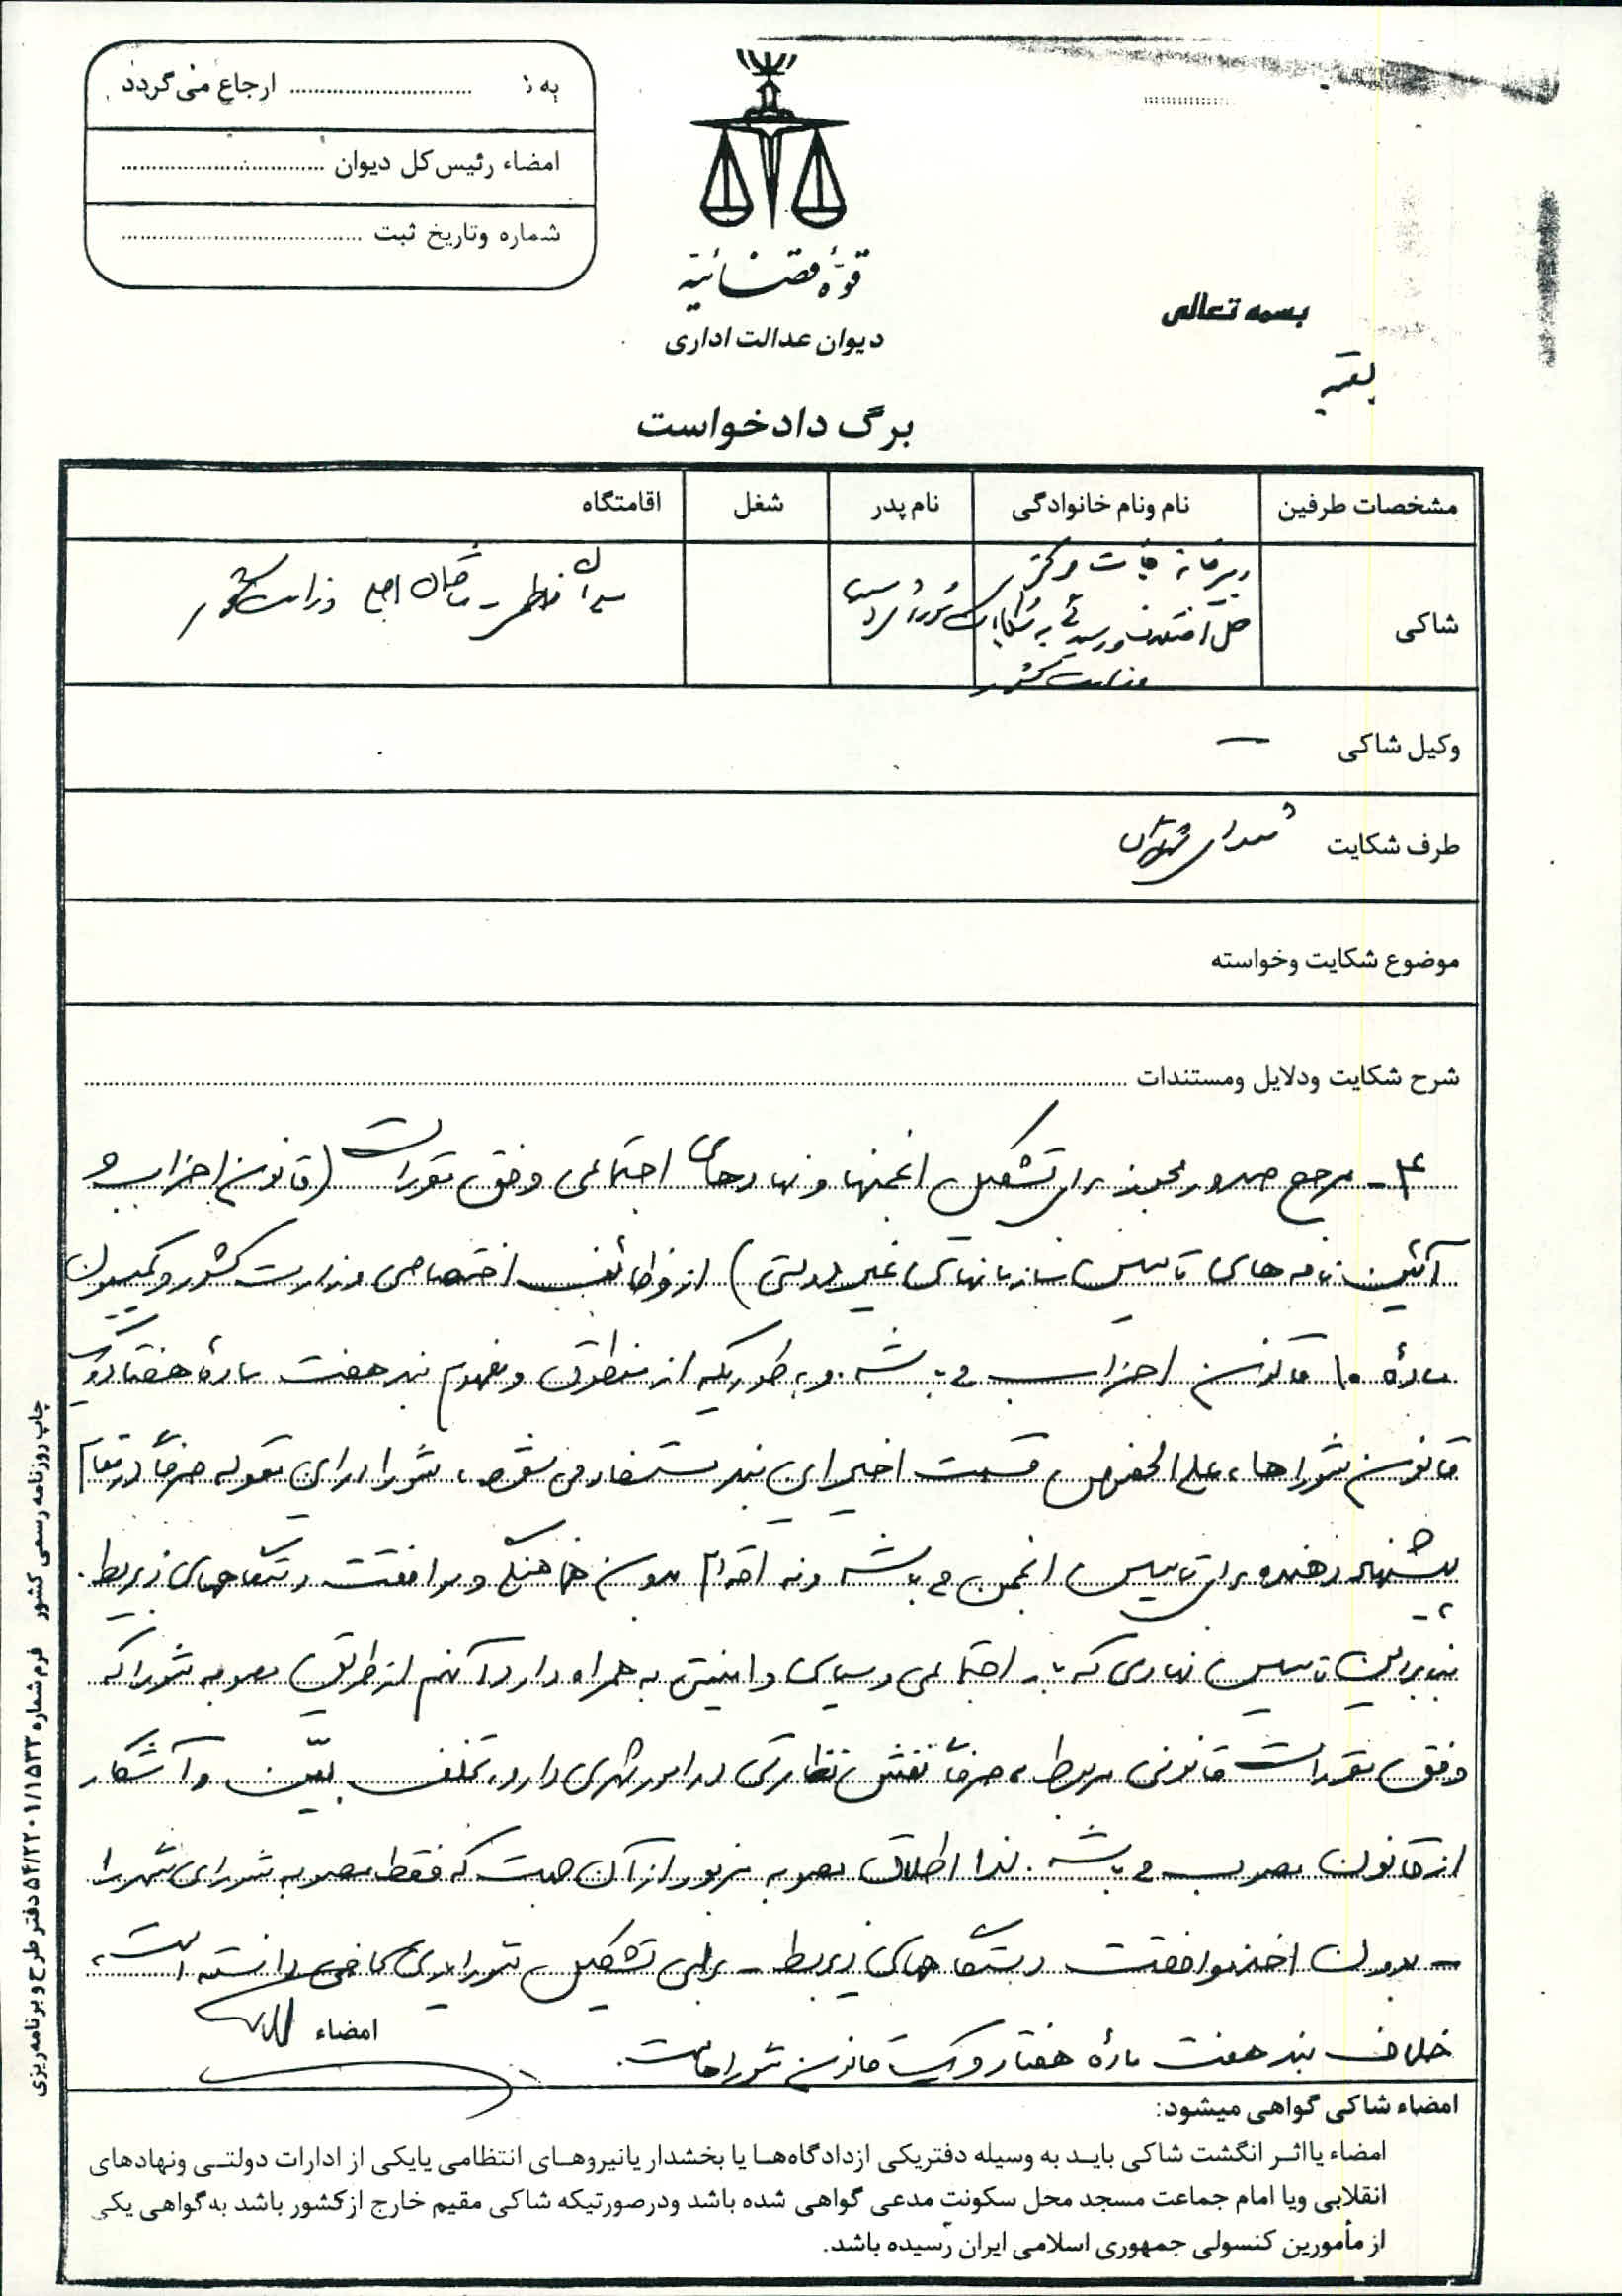 به ............................ ارجاع می‌گردد
امضاء رئیس کل دیوان ............................
شماره وتاریخ ثبت ............................
قوّهٔ قضائیه
دیوان عدالت اداری
بسمه تعالی
بقیه
برگ دادخواست
مشخصات طرفین
نام ونام خانوادگی
نام پدر
شغل
اقامتگاه
شاکی
دبیرخانه هیأت مرکزی
حل اختلاف و رسیدگی به شکایات شوراهای
وزارت کشور
میدان فاطمی - ساختمان اصلی وزارت کشور
وکیل شاکی —
طرف شکایت
شورای
موضوع شکایت وخواسته
شرح شکایت ودلایل ومستندات
۴- مرجع صدور مجوز برای تشکیل انجمنها و نهادهای اجتماعی وفق مقررات (قانون احزاب و
آئین نامه های تاسیس سازمانهای غیر دولتی) از وظائف اختصاصی وزارت کشور و کمیسیون
مادهٔ ۱۰ قانون احزاب می باشد. و به طوریکه از منطوق و مفهوم بند هفت مادهٔ هفتاد و یک
قانون شوراها، علی الخصوص قسمت اخیر این بند مستفاد می شود، شورا در این مقوله صرفاً در مقام
پیشنهاد دهنده برای تاسیس انجمن می باشد و نه اقدام بدون هماهنگی و موافقت دستگاههای ذیربط.
بنابراین تاسیس نهادی که بار اجتماعی و سیاسی و امنیتی به همراه دارد آنهم از طریق مصوبه شورا که
وفق مقررات قانونی مربوط، صرفاً نقش نظارتی در امور شهری دارد، تخلف بیّن و آشکار
از قانون مصوب می باشد. لذا اطلاق مصوبه مزبور از آن جهت که فقط مصوبه شورای شهر را
- بدون اخذ موافقت دستگاههای ذیربط - برای تشکیل شورایاری کافی دانسته است،
خلاف بند هفت مادهٔ هفتاد و یک قانون شوراهاست.
امضاء
امضاء شاکی گواهی میشود:
امضاء یااثر انگشت شاکی باید به وسیله دفتریکی ازدادگاه‌ها یا بخشدار یانیروهای انتظامی یایکی از ادارات دولتی ونهادهای
انقلابی ویا امام جماعت مسجد محل سکونت مدعی گواهی شده باشد ودرصورتیکه شاکی مقیم خارج ازکشور باشد به گواهی یکی
از مأمورین کنسولی جمهوری اسلامی ایران رسیده باشد.
چاپ روزنامه رسمی کشور فرم شماره ۵۴/۲۲۰۱/۱۵۳۳ دفتر طرح و برنامه‌ریزی